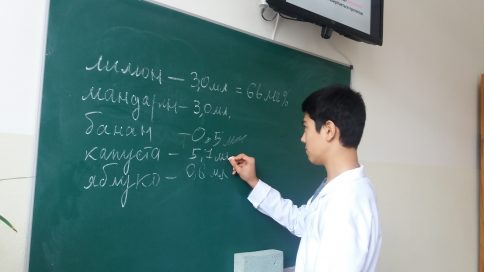 лимон – 3,0 мл = 66 мг%
мандарин – 3,0 мл,
банан – 0,5 мл
капуста – 5,7 мл
яблуко – 0,6 мл